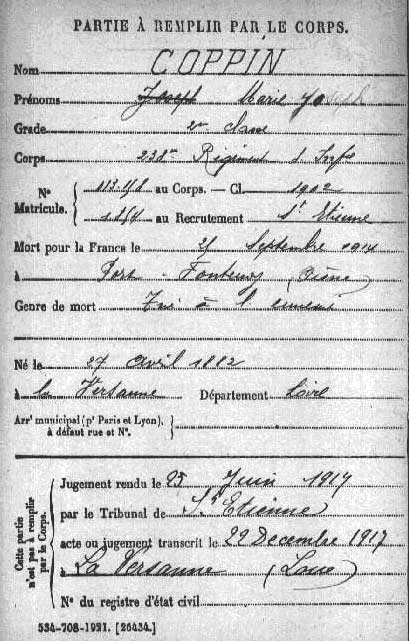 PARTIE À REMPLIR PAR LE CORPS.
Nom COPPIN
Prénoms Joseph Marie Joseph
Grade 2me classe
Corps 238me Régiment d'Infie
N° Matricule. { au Corps. — Cl. 1902
au Recrutement St Etienne
Mort pour la France le Septembre 1914
à Port - Fontenoy (Aisne)
Genre de mort Tué à l'ennemi
Né le 27 avril 1882
à la Versanne Département Loire
Arrt municipal (pr Paris et Lyon), à défaut rue et N°. }
Cette partie n'est pas à remplir par le Corps.
Jugement rendu le 25 Juin 1917
par le Tribunal de St Etienne
acte ou jugement transcrit le 22 Decembre 1917
à La Versanne (Loire)
N° du registre d'état civil
534-708-1921. [26434.]